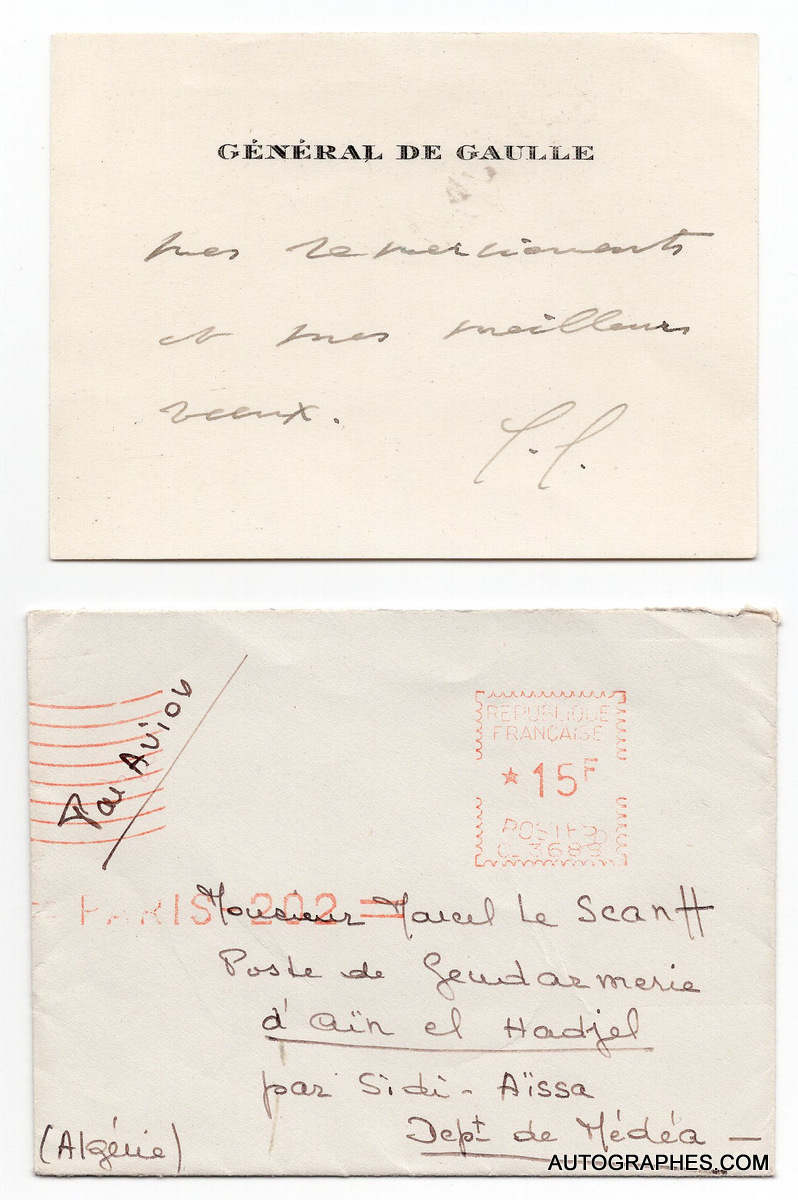 GÉNÉRAL DE GAULLE
mes remerciements
et mes meilleurs
vœux.
Par Avion
RÉPUBLIQUE
FRANÇAISE
★ 15F
POSTES
C. 3689
PARIS 202
Monsieur Marcel Le Scanff
Poste de Gendarmerie
d'Aïn el Hadjel
par Sidi-Aïssa
Dept de Médéa —
(Algérie)
AUTOGRAPHES.COM